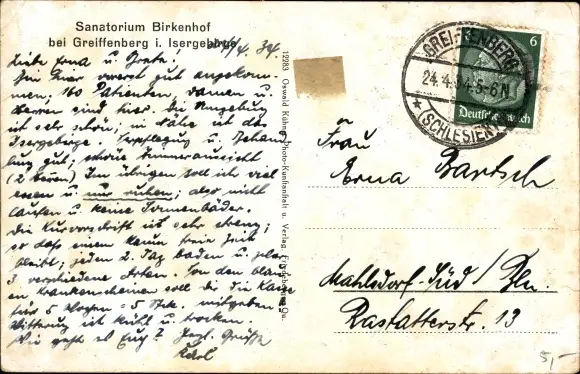 Sanatorium Birkenhof
bei Greiffenberg i. Isergebirge
24/4. 34.
Liebe Erna u. Grete.
Bin hier vorerst gut angekom-
men. 160 Patienten, Damen u.
Herren sind hier. Die Umgebung
ist sehr schön; in Nähe ist das
Isergebirge. Verpflegung u. Behand-
lung gut; schöne Zimmeraussicht
(2 Betten) Im übrigen soll ich viel
essen u. nur ruhen; also nicht
laufen u. keine Sonnenbäder.
Die Kurvorschrift ist sehr streng;
so daß einem kaum freie Zeit
bleibt; jeden 2. Tag baden u. zwar
3 verschiedene Arten. Von den blau-
en Krankenscheinen soll dir die Kasse
für 5 Wochen = 5 Stck. mitgeben
Witterung ist kühl u. trocken.
Wie geht es Euch? Herzl. Grüße
Karl
12283 Oswald Kühn, Photo-Kunstanstalt u. Verlag,
GREIFFENBERG
24.4.34.5-6N
* (SCHLESIEN)
6
Deutsches Reich
Frau
Erna Bartsch
Mahlsdorf-Süd / Bln.
Rastatterstr. 13
5,-